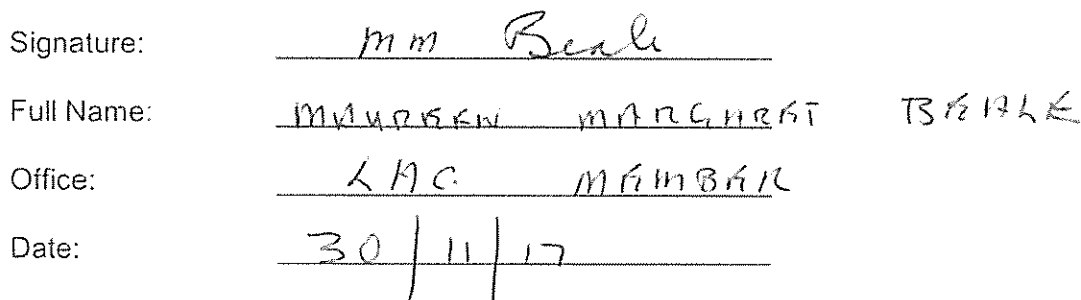 Signature: MM Beale
Full Name: MAUREEN MARGARET BEALE
Office: LAC MEMBER
Date: 30/11/17